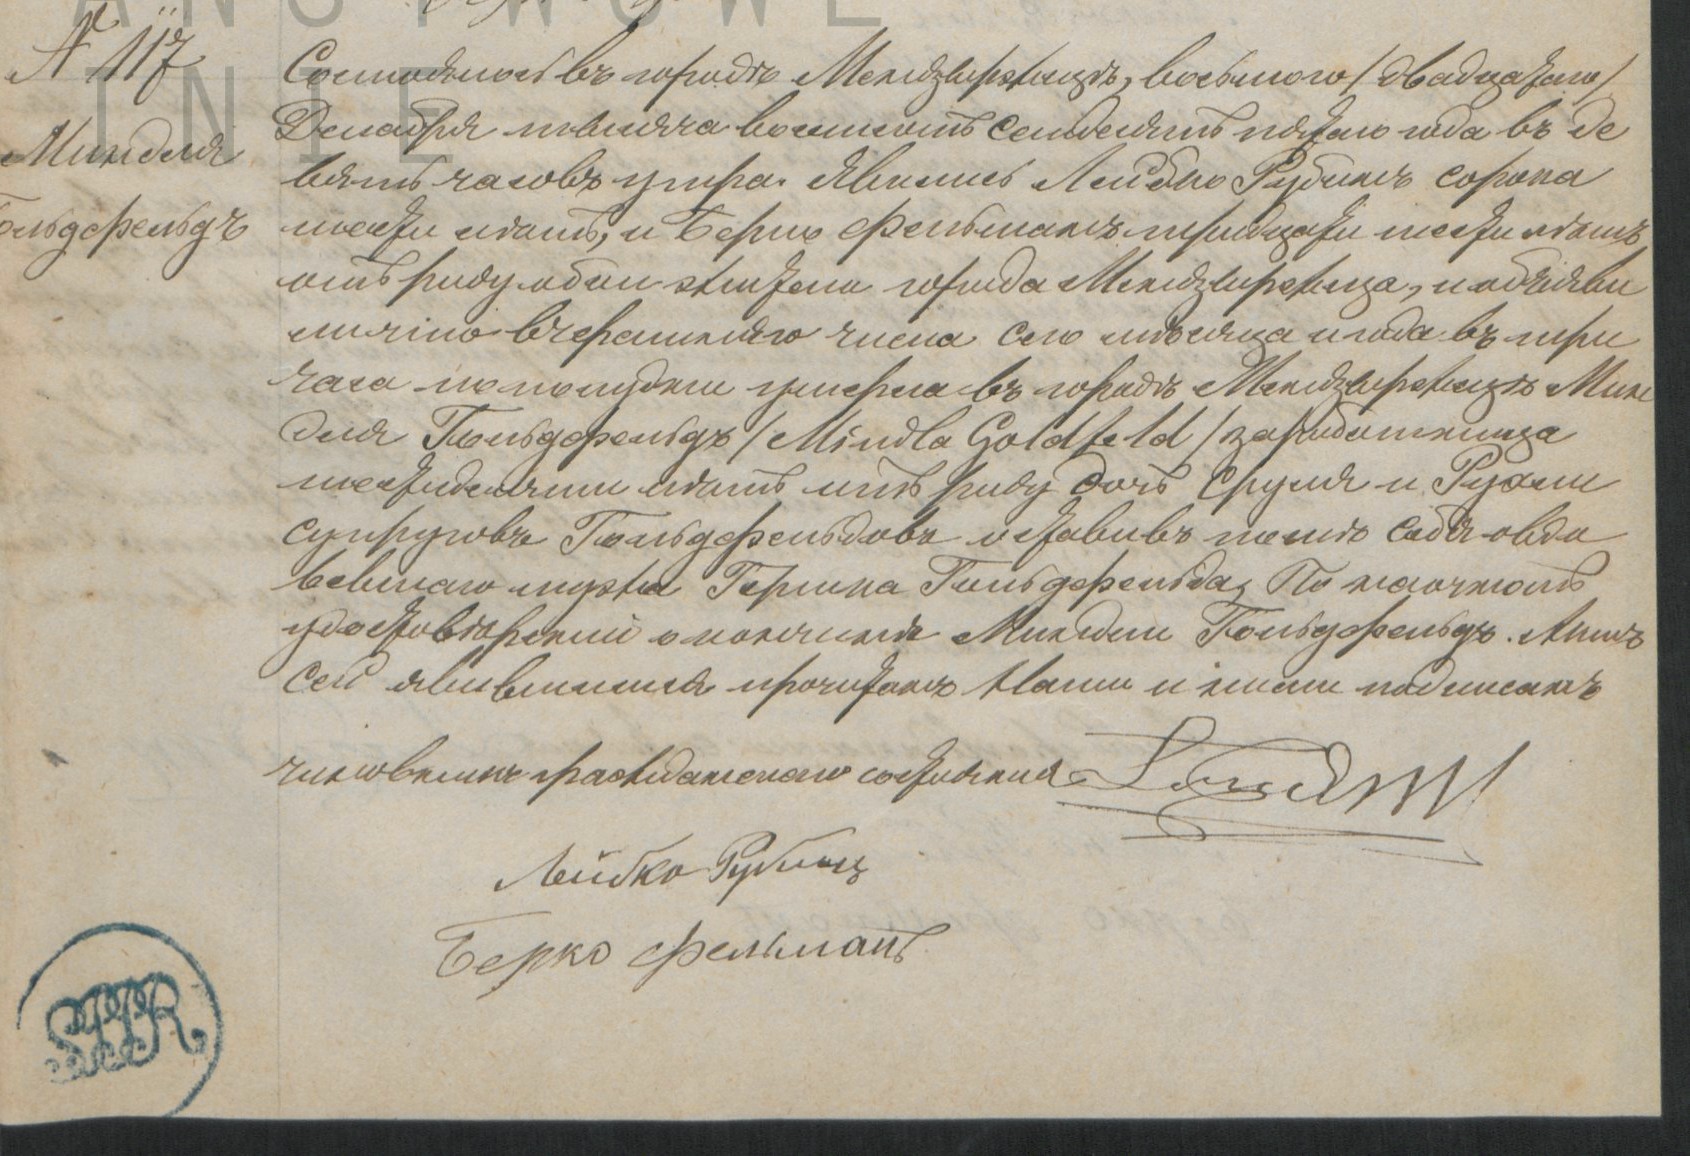 № 117
Миндля
Гольдфельдъ
Состоялось въ городѣ Мендзиржецѣ, восьмого /двадцатаго/
Декабря тысяча восемьсотъ семьдесятъ пятаго года въ де
вять часовъ утра. Явились Лейбко Рубинъ сорока
шести лѣтъ, и Берко Фельманъ тридцати шести лѣтъ
отъ роду оба жители города Мендзиржеца, и объяви
ли что вчерашняго числа сего мѣсяца и года въ три
часа по полудни умерла въ городѣ Мендзиржецѣ Мин
для Гольдфельдъ /Mindla Goldfeld/ заработница
шестидесяти лѣтъ отъ роду дочь Сруля и Рухли
супруговъ Гольдфельдовъ оставивъ послѣ себя овдо
вевшаго мужа Гершка Гольдфельда, По наочномъ
удостовѣреніи о кончинѣ Миндли Гольдфельдъ. Актъ
сей явившимся прочитанъ Нами и ними подписанъ
чиновникъ гражданскаго состоянія
Лейбко Рубинъ
Берко Фельманъ